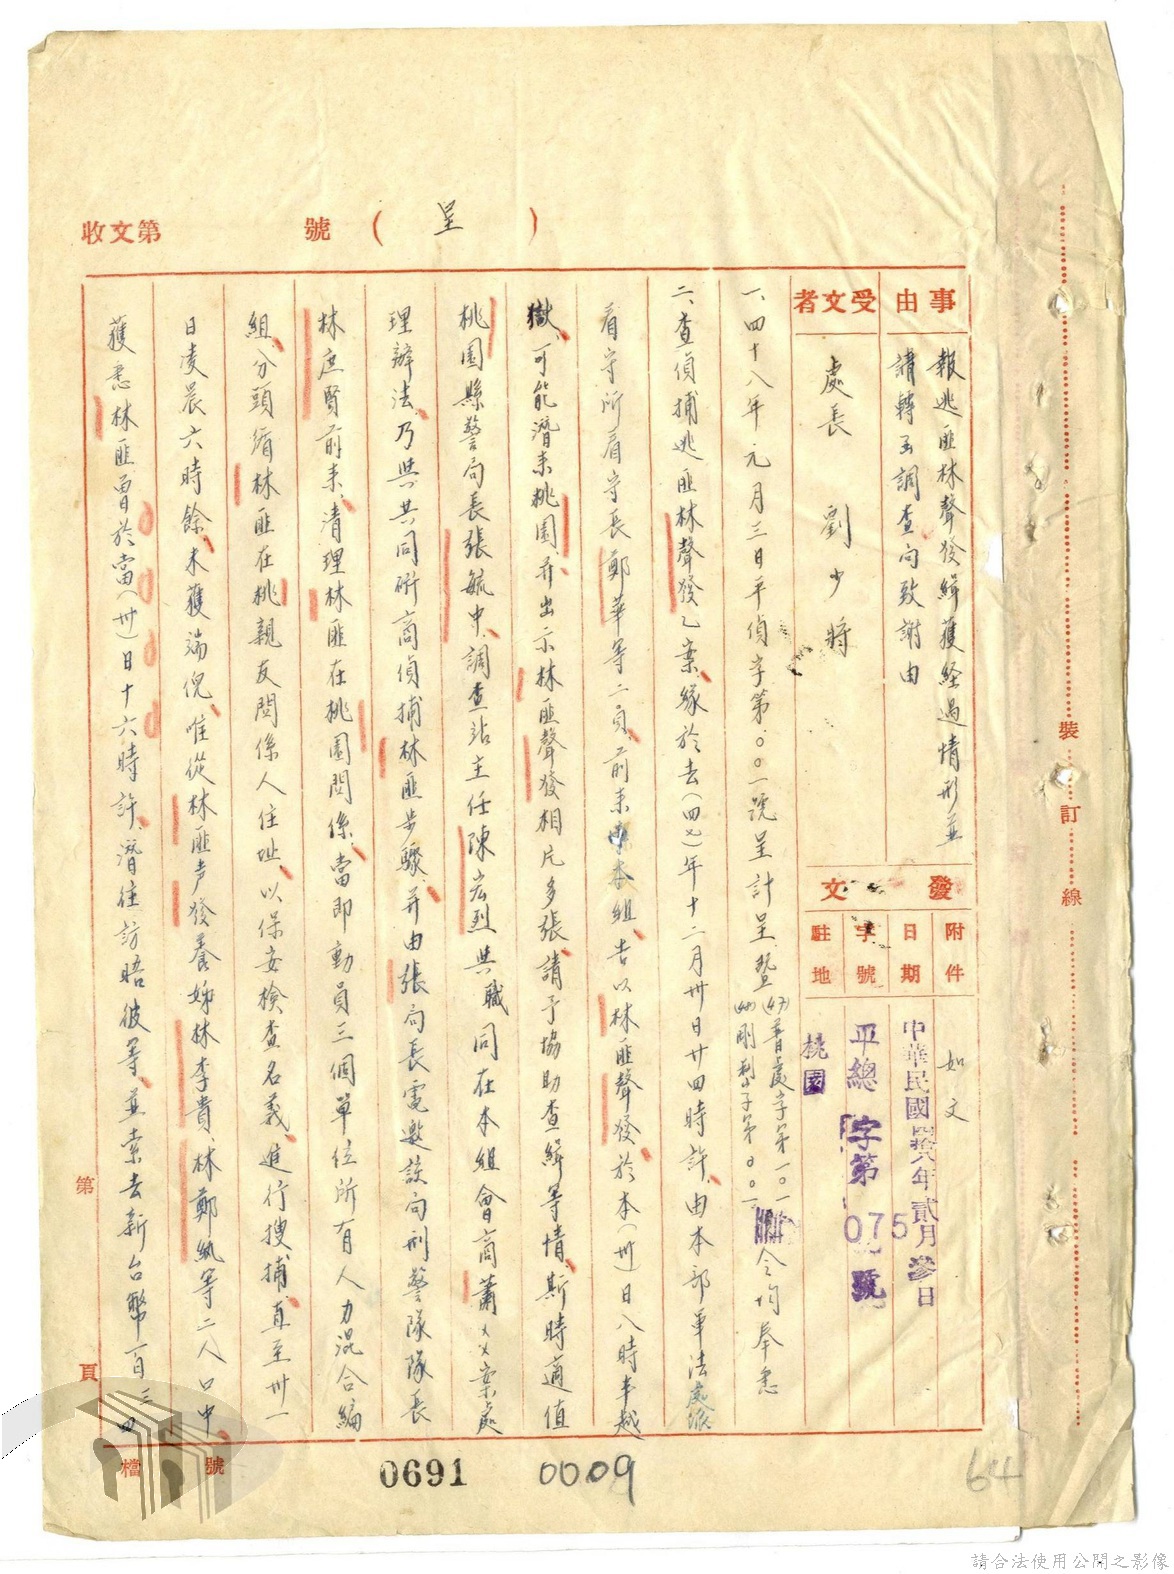 收文第　　　號（呈）
事由
報逃匪林聲發緝獲經過情形並
請轉函調查局致謝由
受文者
處長　劉少將
發文
附件
如文
日期
中華民國四拾八年貳月參日
字號
平總字第075號
駐地
桃園
一、四十八年元月三日平偵字第〇〇一號呈計呈暨(47)普處字第一〇一(48)剛黎字第〇〇一令均奉悉
二、查偵捕逃匪林聲發乙案、緣於去（四七）年十二月卅日廿四時許、由本部軍法處派
看守所看守長鄭華等二員、前來本組、告以林匪聲發、於本（卅）日八時半越
獄、可能潛來桃園、并出示林匪聲發相片多張、請予協助查緝等情、斯時適值
桃園縣警局長張毓中、調查站主任陳宏烈與職同在本組會商蕭××案處
理辦法、乃與共同研商偵捕林匪步驟、并由張局長電邀該局刑警隊隊長
林庶賢前來、清理林匪在桃園關係、當即動員三個單位所有人力混合編
組、分頭循林匪在桃親友關係人住址、以保安檢查名義、進行搜捕、直至卅一
日凌晨六時餘、未獲端倪、唯從林匪声發養姊林李貴、林鄭紈等二人口中、
獲悉林匪曾於當（卅）日十六時許、潛往訪晤彼等、並索去新台幣一百三四
裝訂線
第　頁
檔　號
0691
0009
64
請合法使用公開之影像